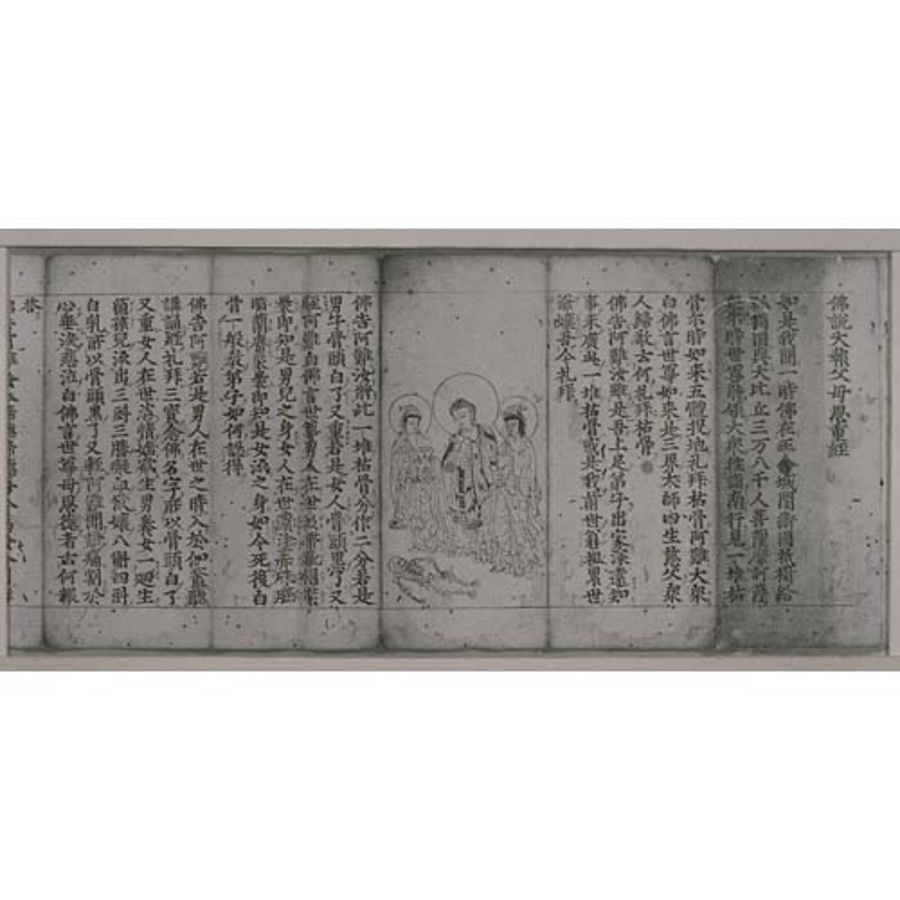 佛說大報父母恩重經
如是我聞一時佛在王舍城
大比丘三万八千人菩薩摩訶薩
尒時世尊將領大眾往詣南行見一堆枯
骨尒時如來五體投地礼拜枯骨阿難大眾
白佛言世尊如來是三界大師四生慈父眾
人歸敬云何礼拜枯骨
佛告阿難汝雖是吾上足弟子出家深遠知
事未廣此一堆枯骨或是我前世翁祖累世
爺孃吾今礼拜
佛告阿難汝將此一堆枯骨分作二分若是
男子骨頭白了又重若是女人骨頭黑了又
輕阿難白佛言世尊男人在世
即知是男兒之身女人在世濃塗赤硃臙
脂蘭麝裏即知是女流之身如今死後白
骨一般教弟子如何認得
佛告阿難若是男人在世之時入於伽藍聽
講誦經礼拜三寶念佛名字所以骨頭白了
又重女人在世恣情婬欲生男養女一廻生
箇孩兒流出三斛三勝凝血飲孃八斛四斗
白乳所以骨頭黑了又輕阿難聞語痛割於
心垂淚悲泣白佛言世尊母恩德者云何報
答